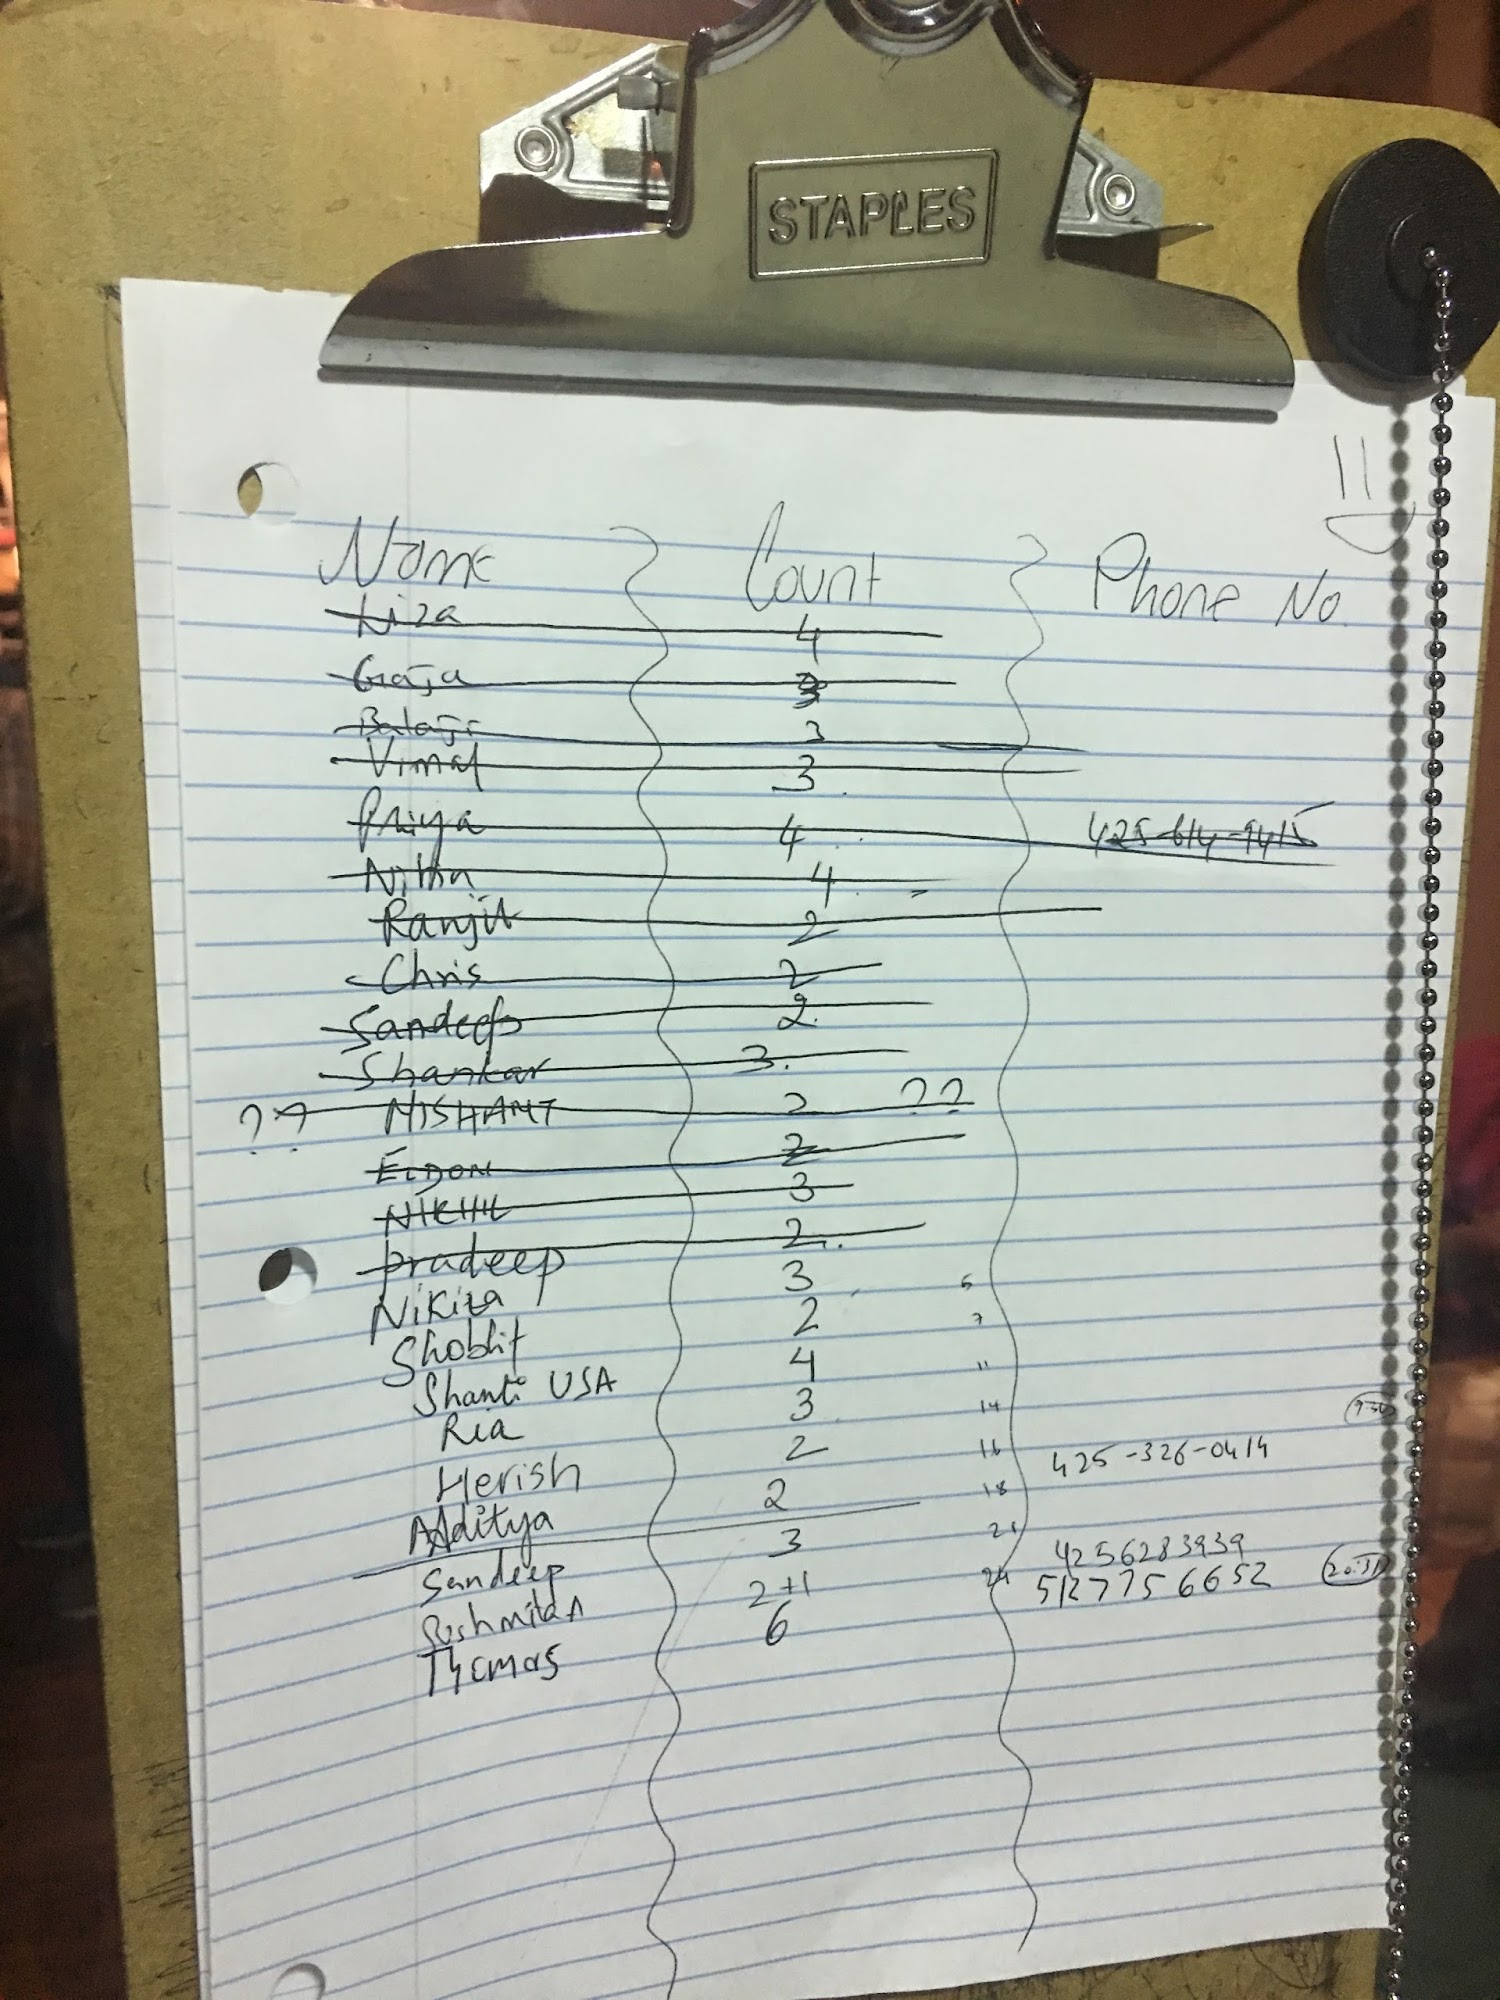 STAPLES
11
Name Count Phone No.
Liza 4
Gaja 3
Balaji 3
Vimal 3
Priya 4 425-614-9415
Nithn 4
Ranjit 2
Chris 2
Sandeep 2.
Shankar 3.
?? NISHANT 2 ??
ELDON 2
NIKHIL 3
pradeep 2
Nikita 3 5
Shobhit 2 7
Shanti USA 4 11
Ria 3 14
Herish 2 16 425-326-0414
Aditya 2 18
Sandeep 3 21 4256283939
Sushmita 2+1 24 5127756652
Thomas 6